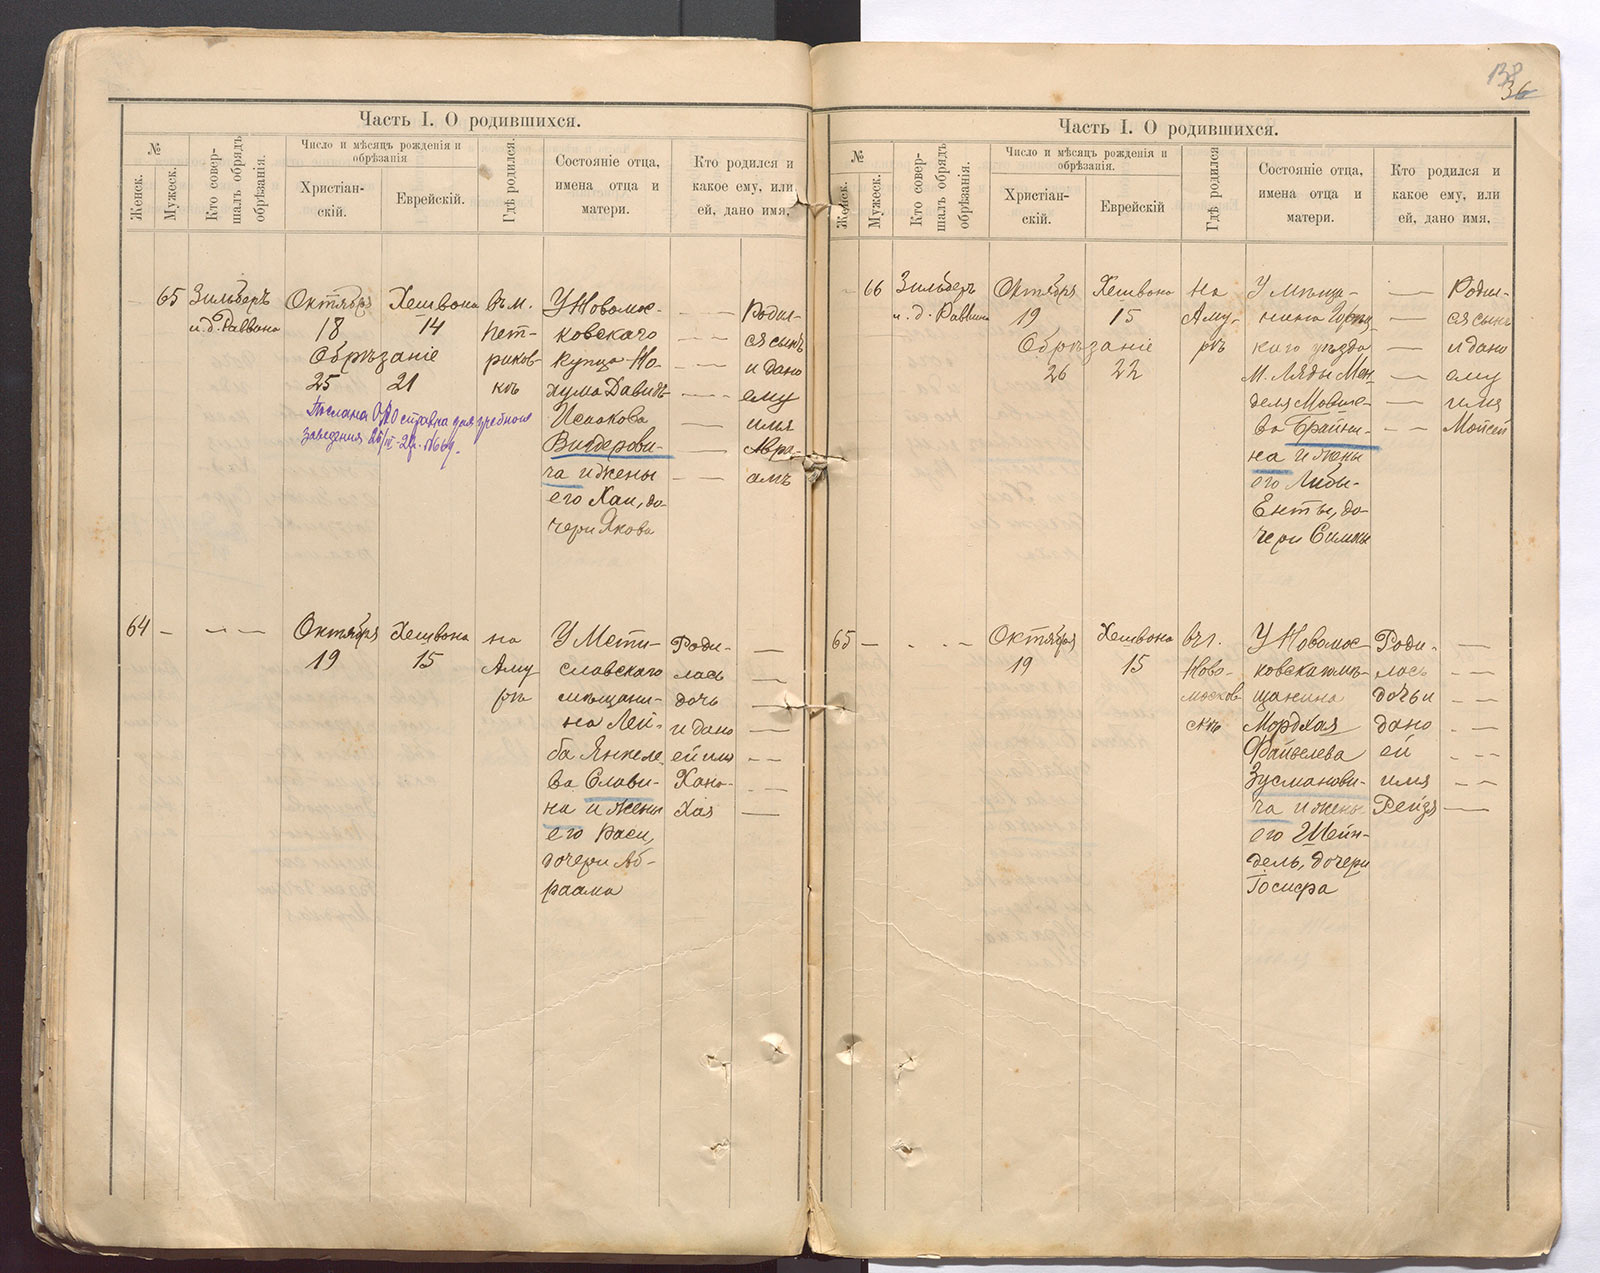 138
36
Часть I. О родившихся.
№
Женск.
Мужеск.
Кто совер-
шалъ обрядъ
обрѣзанія.
Число и мѣсяцъ рожденія и
обрѣзанія
Христіан-
скій.
Еврейскій.
Гдѣ родился.
Состояніе отца,
имена отца и
матери.
Кто родился и
какое ему, или
ей, дано имя,
65
Зильберъ
и. д. Раввина
Октября
18
Обрѣзаніе
25
Хешвона
14
21
Послана
справка для учебного
заведения
въ м.
Пет-
риков-
кѣ
У Новомос-
ковскаго
купца Но-
хума Давидъ
Исаакова
Виддерови-
ча и жены
его Хаи, до-
чери Якова
Родил-
ся сынъ
и дано
ему
имя
Авра-
амъ
64
Октября
19
Хешвона
15
на
Аму
рѣ
У Мсти-
славскаго
мѣщани-
на Лей-
ба Янкеле-
ва Слави-
на и жены
его Раси,
дочери Аб-
раама
Роди-
лась
дочь
и дано
ей имя
Хана-
Хая
Часть I. О родившихся.
№
Женск.
Мужеск.
Кто совер-
шалъ обрядъ
обрѣзанія.
Число и мѣсяцъ рожденія и
обрѣзанія.
Христіан-
скій.
Еврейскій
Гдѣ родился
Состояніе отца,
имена отца и
матери.
Кто родился и
какое ему, или
ей, дано имя,
66
Зильберъ
и. д. Раввина
Октября
19
Обрѣзаніе
26
Хешвона
15
22
на
Аму-
рѣ
У мѣща-
нина
каго уѣзда
м. Ляды Мен-
деля Мовше-
ва Брайни-
на и жены
его Либы-
Енты, до-
чери Симхи
Родил-
ся сынъ
и дано
ему
имя
Мойсей
65
Октября
19
Хешвона
15
въ г.
Ново-
москов
скѣ
У Новомос-
ковска мѣ-
щанина
Мордхая
Файвелева
Зусманови-
ча и жены
его Шейн-
дель, дочери
Іосифа
Роди-
лась
дочь и
дано
ей
имя
Рейзя